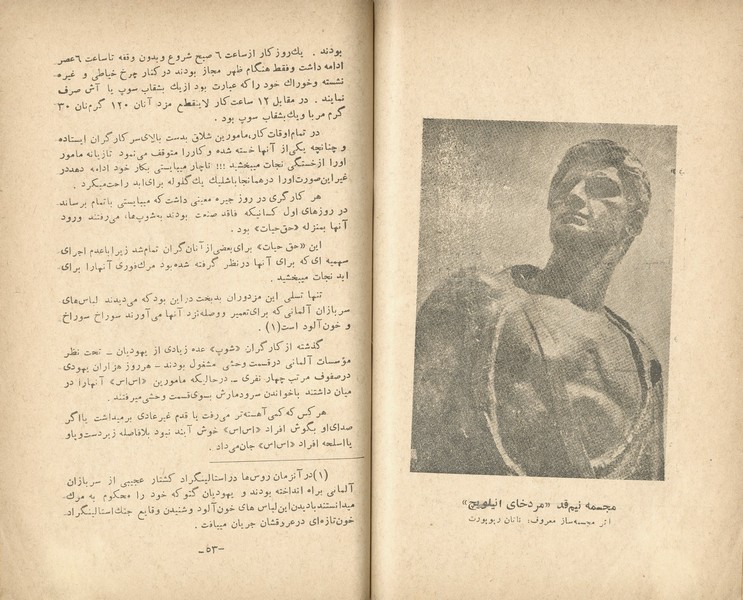 مجسمه نیم‌قد «مردخای انیلویچ»
اثر مجسمه‌ساز معروف: ناتان رپوپورت
بودند . یك‌روز کار از ساعت ۶ صبح شروع وبدون وقفه تاساعت ۶عصر
ادامه داشت وفقط هنگام ظهر مجاز بودند درکنار چرخ خیاطی و غیره
نشسته وخوراك خود را که عبارت بود ازیك بشقاب سوپ یا آش صرف
نمایند . در مقابل ۱۲ ساعت کار لاینقطع مزد آنان ۱۲۰ گرم نان ۳۰
گرم مربا ویك بشقاب سوپ بود .
در تمام اوقات کار، مامورین شلاق بدست بالای سر کارگران ایستاده
و چنانچه یکی از آنها خسته شده و کار را متوقف می‌نمود تازیانه مامور
اورا ازخستگی نجات میبخشید !!! ناچار میبایستی بکار خود ادامه دهد در
غیر این‌صورت اورا درهمانجا باشلیك یك گلوله برای ابد راحت میکرد .
هر کارگری در روز جیره معینی داشت که میبایستی با تمام برساند.
در روزهای اول کسانیکه فاقد صنعت بودند به‌شوپ‌ها، می‌رفتند ورود
آنها بمنزله «حق حیات» بود .
این «حق حیات» برای بعضی از آنان گران تمام شد زیرا با عدم اجرای
سهمیه ای که برای آنها در نظر گرفته شده بود مرك فوری آنهارا برای
ابد نجات میبخشید .
تنها تسلی این مزدوران بدبخت در این بود که می‌دیدند لباس‌های
سربازان آلمانی که برای تعمیر ووصله نزد آنها می‌آورند سوراخ سوراخ
و خون آلود است(۱) .
گذشته از کارگران «شوپ» عده زیادی از یهودیان ــ تحت نظر
مؤسسات آلمانی در قسمت وحشی مشغول بودند ــ هر روز هزاران یهودی
درصفوف مرتب چهار نفری ــ درحالیکه مامورین «اس‌اس» آنهارا در
میان داشتند باخواندن سرودمارش بسوی قسمت وحشی میرفتند .
هر کس که کمی آهسته‌تر می‌رفت یا قدم غیرعادی برمیداشت یا اگر
صدای او بگوش افراد «اس‌اس» خوش آیند نبود بلافاصله زیر دست و پا و
یا اسلحه افراد «اس‌اس» جان می‌داد .
(۱) در آنزمان روس‌ها در استالینگراد کشتار عجیبی از سربازان
آلمانی براه انداخته بودند و یهودیان گتو که خود را محکوم به مرك
میدانستند بادیدن این لباس های خون آلود وشنیدن وقایع جنك استالینگراد.
خون تازه‌ای در عروقشان جریان مییافت .
ــ۵۳ــ